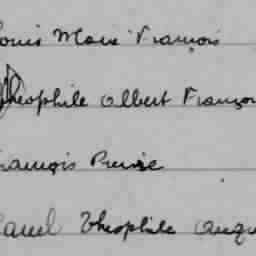 Louis Marie François
Théophile Albert François
François Pierre
Théophile